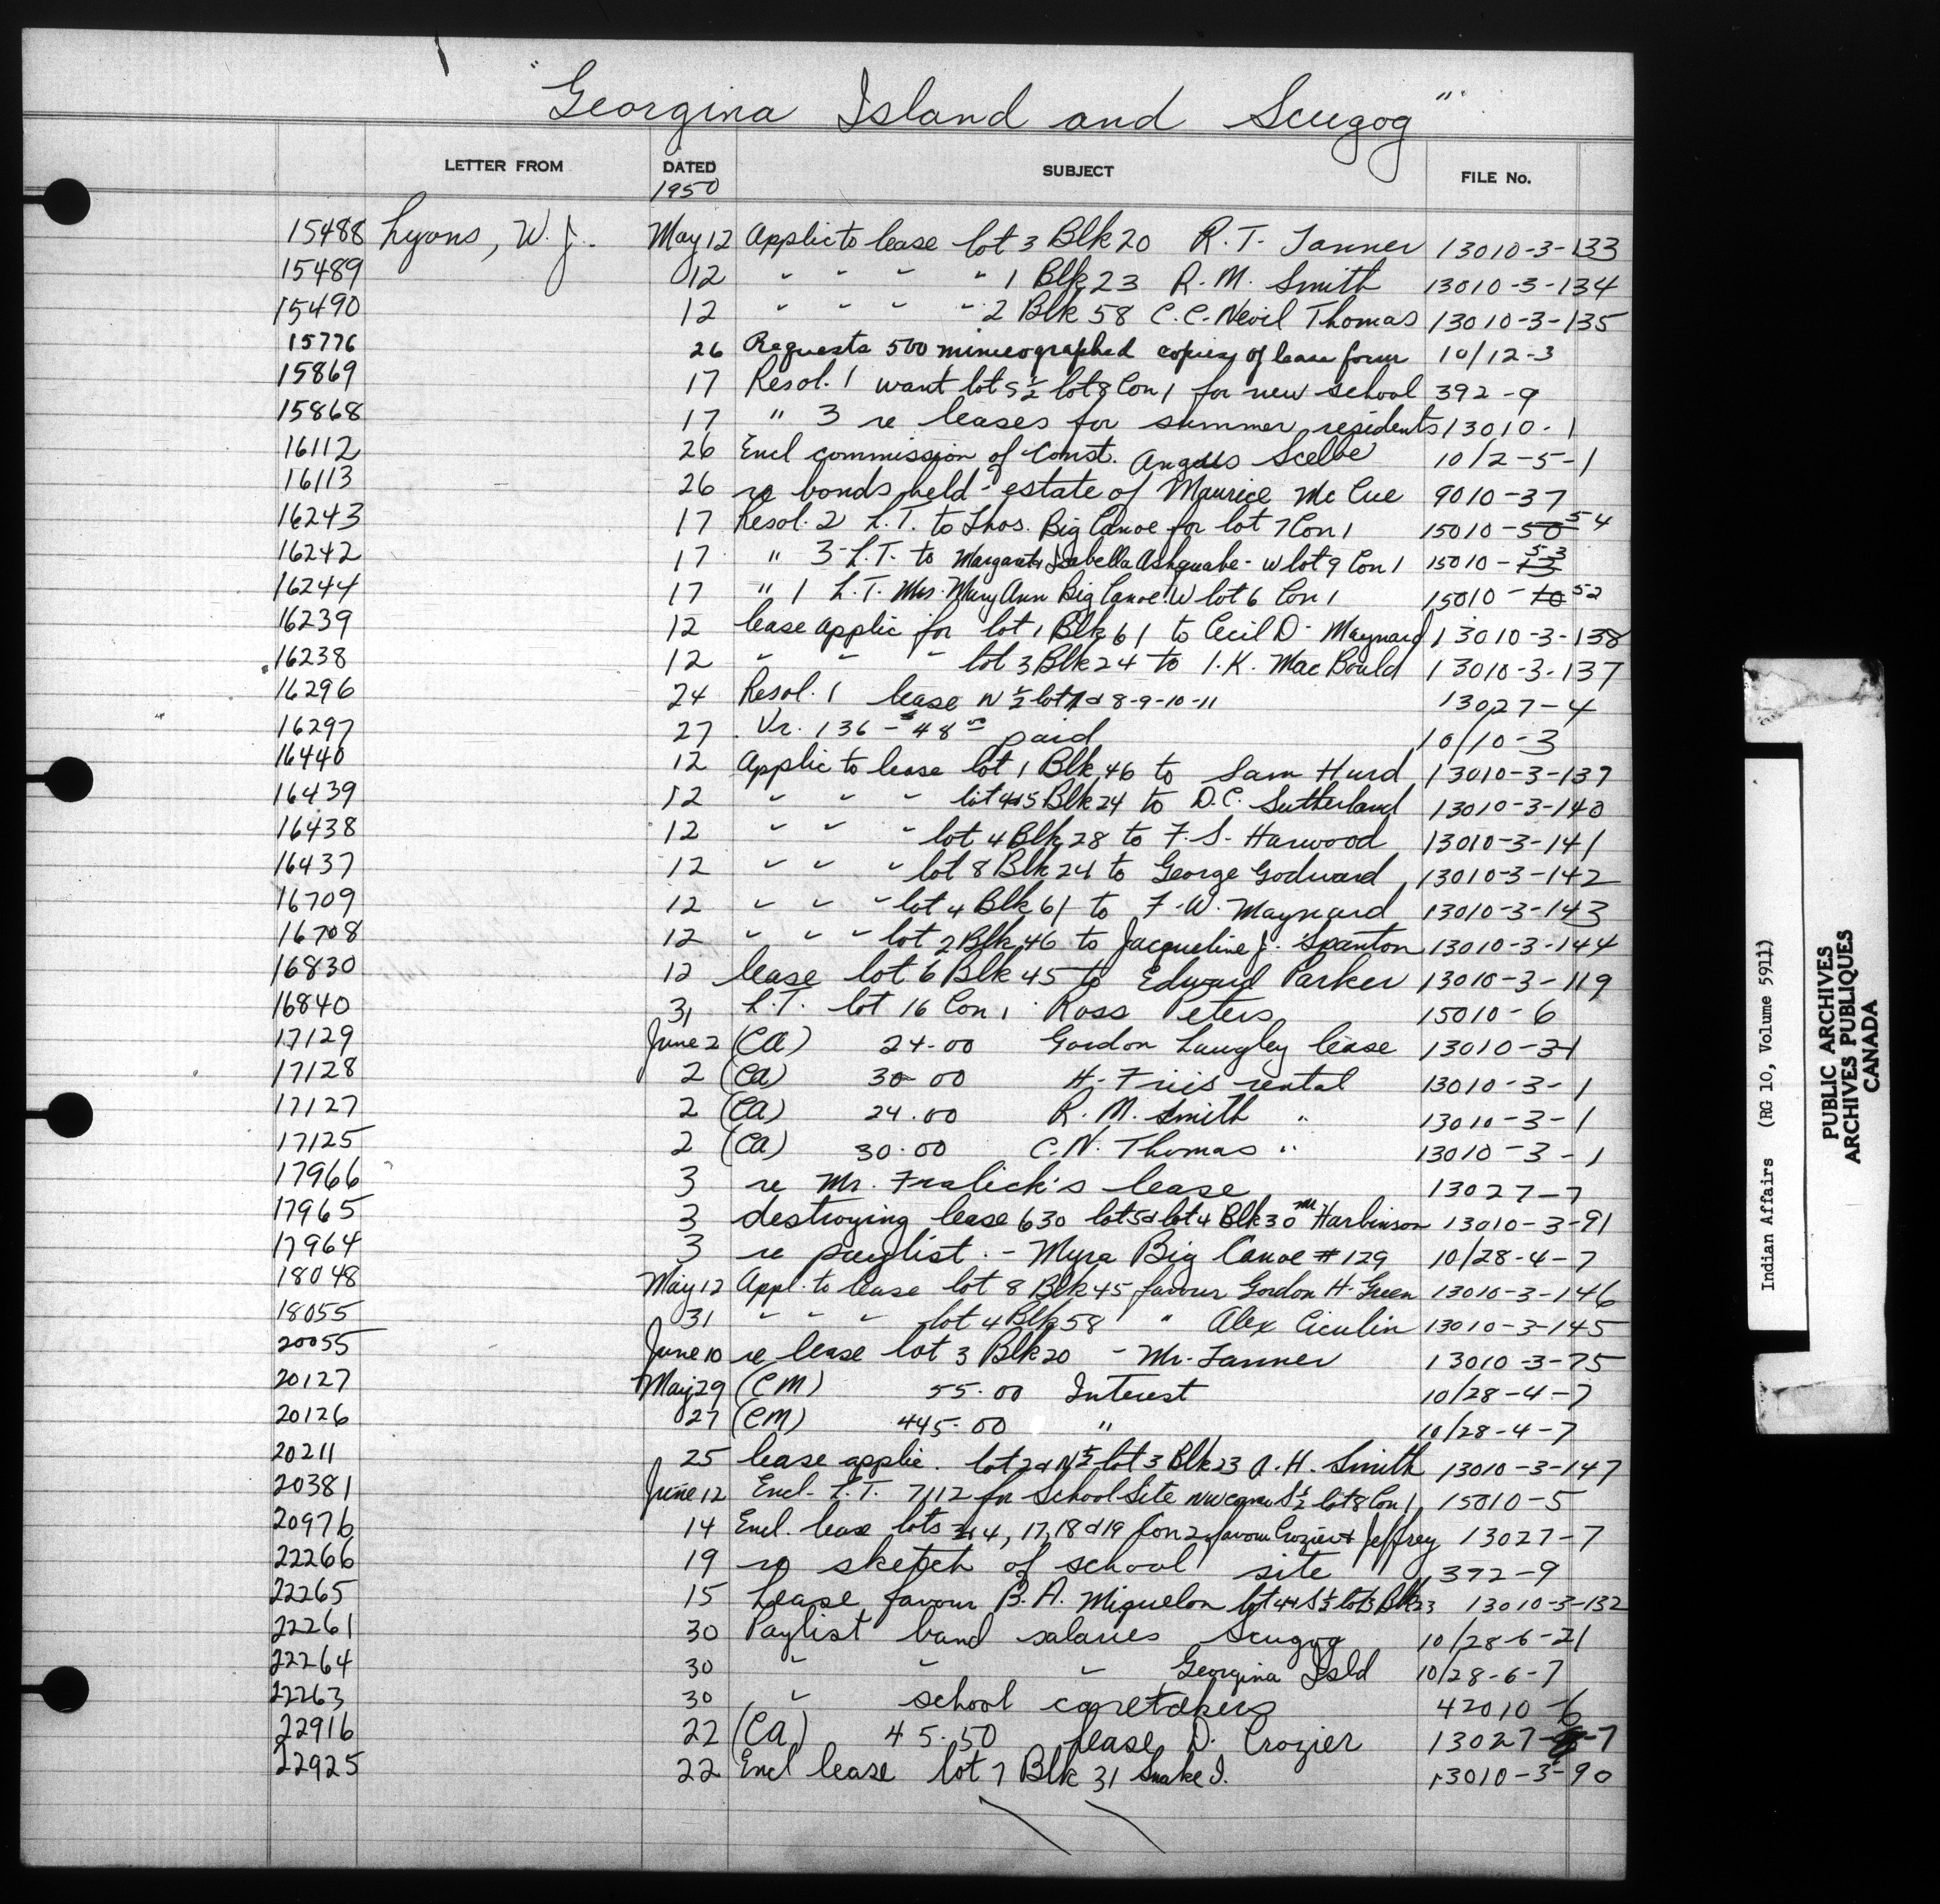 "Georgina Island and Scugog"
LETTER FROM DATED SUBJECT FILE No.
1950
15488 Lyons, W. J. May 12 Applic to lease lot 3 Blk 20 R. T. Tanner 13010-3-133
15489 12 " " " " 1 Blk 23 R. M. Smith 13010-3-134
15490 12 " " " " 2 Blk 58 C. C. Nevil Thomas 13010-3-135
15776 26 Requests 500 mimeographed copies of lease form 10/12-3
15869 17 Resol. 1 want lot S ½ lot 8 Con 1 for new school 392-9
15868 17 " 3 re leases for summer residents 13010-1
16112 26 Encl commission of Const. Angus 10/2-5-1
16113 26 re bonds held - estate of Maurice Mc Cue 9010-37
16243 17 Resol. 2 L.T. to Thos. Big Canoe for lot 7 Con 1 15010-50 54
16242 17 " 3 - L.T. to Margaret Isabella Ashquabe - W lot 9 Con 1 15010-53
16244 17 " 1 L.T. Mrs. Mary Ann Big Canoe W lot 6 Con 1 15010-10 52
16239 12 lease applic for lot 1 Blk 61 to Cecil D. Maynard 13010-3-138
16238 12 " " " lot 3 Blk 24 to I. K. Mac Bould 13010-3-137
16296 24 Resol. 1 lease N ½ lot 7 & 8-9-10-11 13027-4
16297 27 Vr. 136 - 48 paid 10/10-3
16440 12 Applic to lease lot 1 Blk 46 to Sam Hurd 13010-3-139
16439 12 " " " lot 4 & 5 Blk 24 to D.C. Sutherland 13010-3-140
16438 12 " " " lot 4 Blk 28 to F. S. Harwood 13010-3-141
16437 12 " " " lot 8 Blk 24 to George Godward 13010-3-142
16709 12 " " " lot 4 Blk 61 to F. W. Maynard 13010-3-143
16708 12 " " " lot 2 Blk 46 to Jacqueline J. Spanton 13010-3-144
16830 12 lease lot 6 Blk 45 to Edward Parker 13010-3-119
16840 31 L.T. lot 16 Con 1 Ross Peters 15010-6
17129 June 2 (CA) 24.00 Gordon Langley lease 13010-31
17128 2 (CA) 30.00 H. Friis rental 13010-3-1
17127 2 (CA) 24.00 R. M. Smith " 13010-3-1
17125 2 (CA) 30.00 C. N. Thomas " 13010-3-1
17966 3 re Mr. Fralick's lease 13027-7
17965 3 destroying lease 630 lot 5 & lot 4 Blk 30 Mr Harbinson 13010-3-91
17964 3 re paylist. - Myra Big Canoe #129 10/28-4-7
18048 May 12 Appl. to lease lot 8 Blk 45 favour Gordon H. Green 13010-3-146
18055 31 " " " lot 4 Blk 58 " Alex Ciculin 13010-3-145
20055 June 10 re lease lot 3 Blk 20 - Mr. Tanner 13010-3-75
20127 May 29 (CM) 55.00 Interest 10/28-4-7
20126 27 (CM) 445.00 " 10/28-4-7
20211 25 lease applic. lot 2 & N ½ lot 3 Blk 23 A. H. Smith 13010-3-147
20381 June 12 Encl. L.T. 7112 for School Site NW corner S ½ lot 8 Con 1 15010-5
20976 14 Encl. lease lots 14, 17, 18 & 19 Con 2 favour Crozier & Jeffrey 13027-7
22266 19 re sketch of school site 372-9
22265 15 Lease favour B. A. Miquelon lot 4 & S ½ lot 3 Blk 23 13010-3-132
22261 30 Paylist band salaries Scugog 10/28-6-21
22264 30 " " " Georgina Isld 10/28-6-7
22263 30 " school caretakers 42010-6
22916 22 (CA) 45.50 lease D. Crozier 13027-7
22925 22 Encl lease lot 7 Blk 31 Snake I. 13010-3-90
Indian Affairs (RG 10, Volume 5911)
PUBLIC ARCHIVES
ARCHIVES PUBLIQUES
CANADA